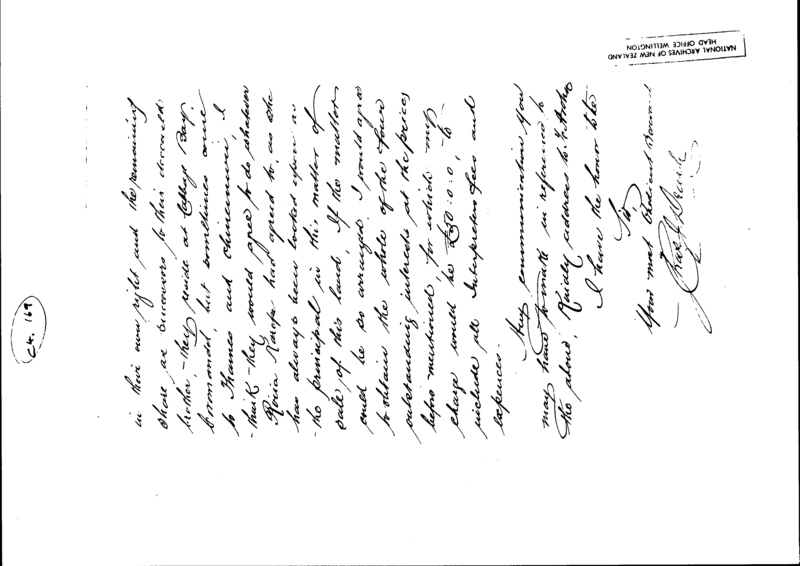 in their own right and the remaining
share as successors to their deceased
brother, - they reside at Cabbage Bay,
Coromandel, but sometimes come
to Thames and Ohinemuri, I
think - they would agree to do whatever
Karepa had agreed to, as she
has always been looked upon as
the principal in this matter of
sale of this land. If the matter
could be so arranged I would agree
to obtain the whole of the four
outstanding interests at the prices
before mentioned, for which my
charge would be £50:0:0, to
include all Interpreters fees and
expences.
Any communication you
may have to make in reference to
the above, Kindly address to
I have the honor to be
Sir,
Your most Obedient Servant
Chas J Dearle
NATIONAL ARCHIVES OF NEW ZEALAND
HEAD OFFICE WELLINGTON
CK. 169